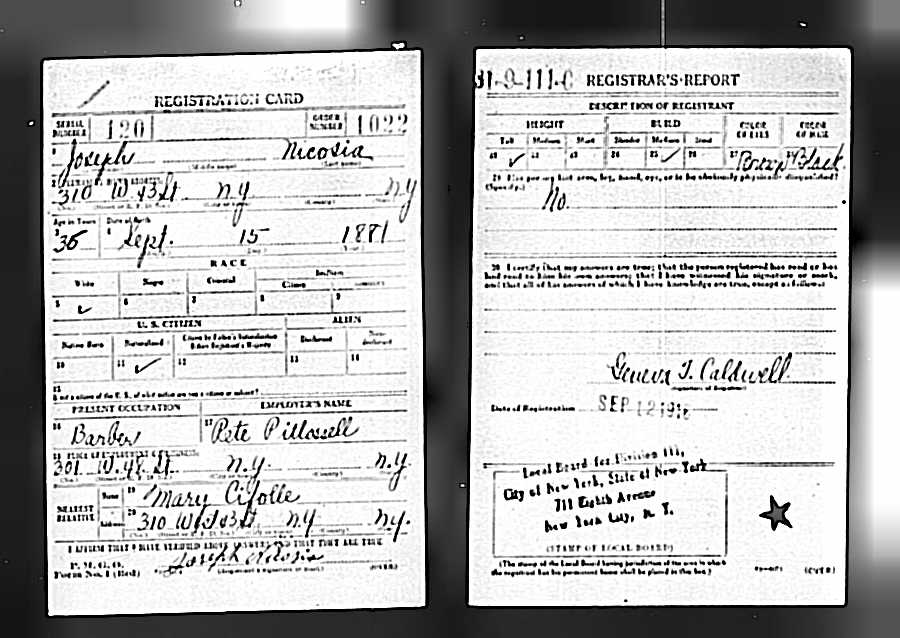 REGISTRATION CARD
SERIAL NUMBER 120 ORDER NUMBER 1022
1 Joseph Nicosia
(Middle name) (Last name)
310 W 43 St N.Y N.Y
Age in Years Date of Birth
36 Sept. 15 1881
RACE
White Negro Oriental Indian
Citizen
5 ✓ 6 7 8 9
U. S. CITIZEN ALIEN
Native Born Naturalized Citizen by Father's Naturalization Before Registrant's Majority Declarant Non-declarant
10 11 ✓ 12 13 14
15
If not a citizen of the U. S., of what nation are you a citizen or subject?
PRESENT OCCUPATION EMPLOYER'S NAME
16 Barber 17 Pete Pillossell
301 W. 48 St. N.Y. N.Y.
NEAREST RELATIVE
Name 19 Mary Cifolle
Address 20 310 W 43 St N.Y N.Y.
I AFFIRM THAT I HAVE VERIFIED ABOVE ANSWERS AND THAT THEY ARE TRUE
Form No. 1 (Red) Joseph Nicosia
(Registrant's signature or mark) (OVER)
31-9-111-C REGISTRAR'S REPORT
DESCRIPTION OF REGISTRANT
HEIGHT BUILD COLOR OF EYES COLOR OF HAIR
Tall Medium Short Slender Medium Stout
21 ✓ 22 23 24 25 ✓ 26 27 Brown 28 Black
29 Has person lost arm, leg, hand, eye, or is he obviously physically disqualified?
(Specify.) No.
30. I certify that my answers are true; that the person registered has read or has
had read to him his own answers; that I have witnessed his signature or mark,
and that all of his answers of which I have knowledge are true, except as follows:
Geneva T. Caldwell
(Signature of Registrar)
Date of Registration SEP 12 1918
Local Board for Division 111,
City of New York, State of New York
711 Eighth Avenue
New York City, N. Y.
(STAMP OF LOCAL BOARD)
(The stamp of the Local Board having jurisdiction of the area in which
the registrant has his permanent home shall be placed in this box.)
(OVER)